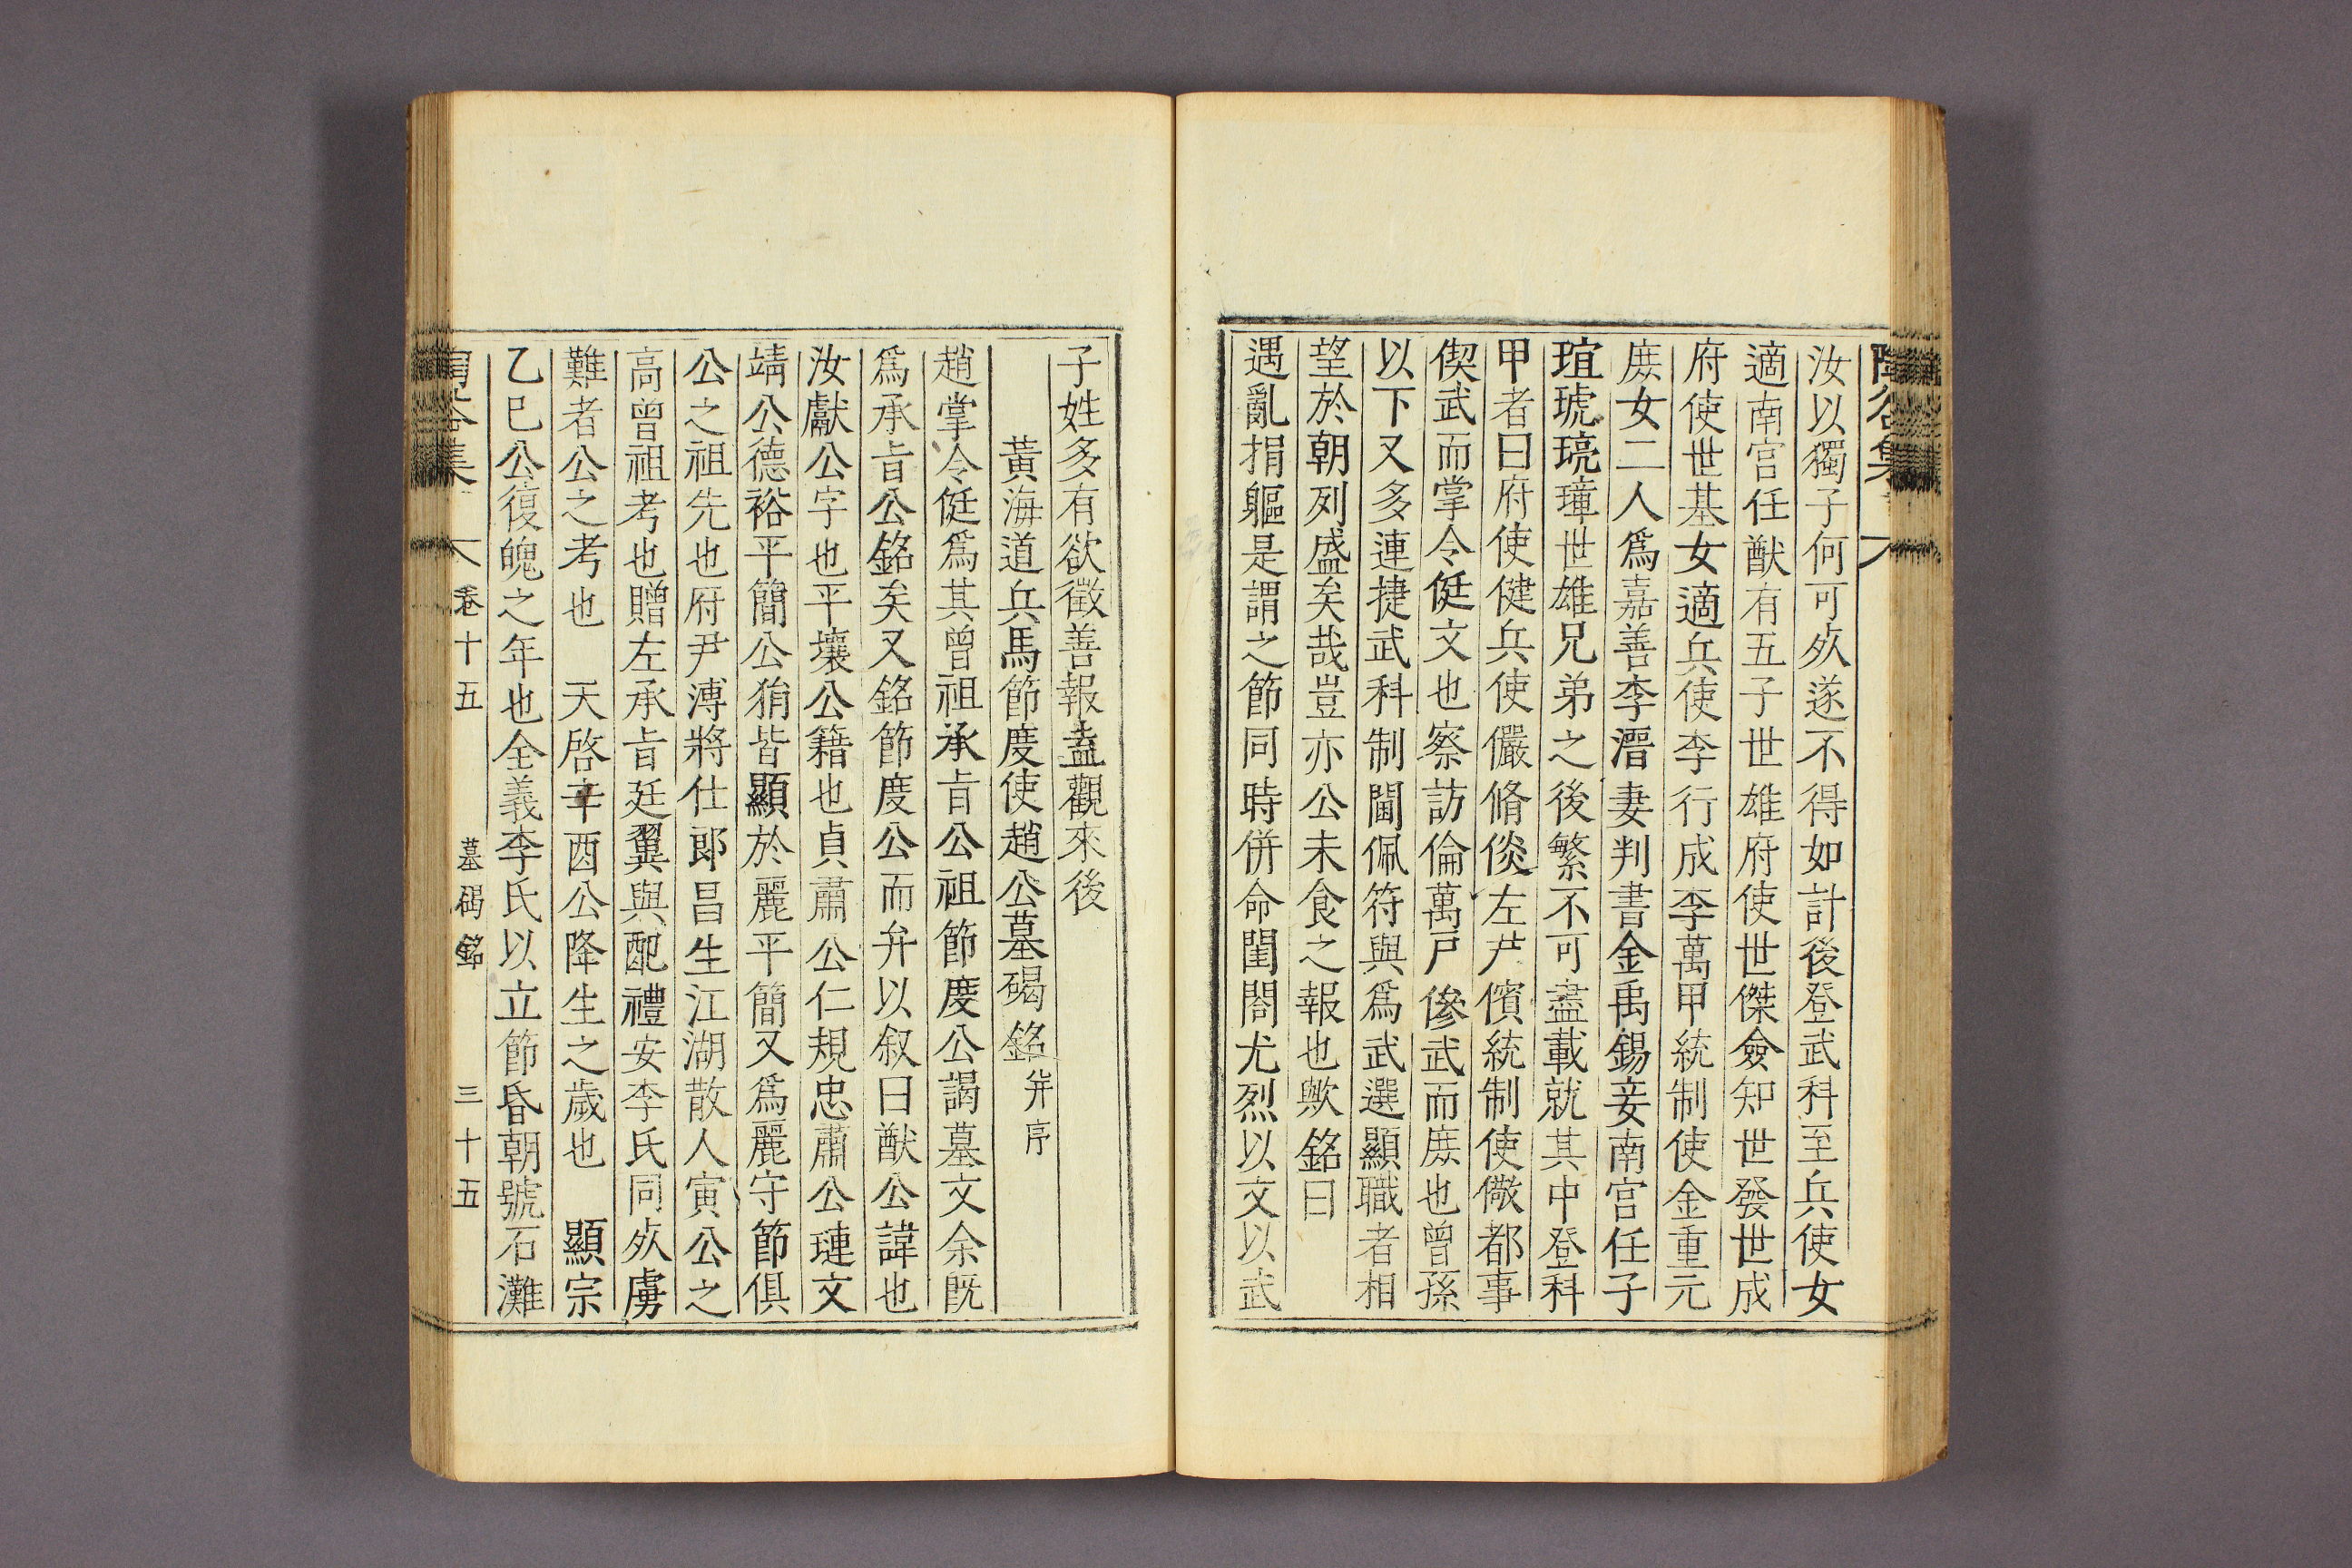 陶谷集
汝以獨子何可死遂不得如計後登武科至兵使女
適南宫任猷有五子世雄府使世傑僉知世發世成
府使世基女適兵使李行成李萬甲統制使金重元
庶女二人爲嘉善李溍妻判書金禹錫妾南宫任子
瑄琥琓㻴世雄兄弟之後繁不可盡載就其中登科
甲者曰府使健兵使儼脩倓左尹儐統制使儆都事
偰武而掌令侹文也察訪倫萬戶傪武而庶也曾孫
以下又多連捷武科制閫佩符與爲武選顯職者相
望於朝列盛矣哉豈亦公未食之報也歟銘曰
遇亂捐軀是謂之節同時併命閨閤尤烈以文以武
子姓多有欲徵善報盍觀來後
黃海道兵馬節度使趙公墓碣銘 幷序
趙掌令侹爲其曾祖承旨公祖節度公謁墓文余旣
爲承旨公銘矣又銘節度公而弁以叙曰猷公諱也
汝獻公字也平壤公籍也貞肅公仁規忠肅公璉文
靖公德裕平簡公狷皆顯於麗平簡又爲麗守節俱
公之祖先也府尹溥將仕郎昌生江湖散人寅公之
高曾祖考也贈左承旨廷翼與配禮安李氏同死虜
難者公之考也 天啓辛酉公降生之歲也 顯宗
乙巳公復魄之年也全義李氏以立節昏朝號石灘
陶谷集 卷十五 墓碣銘 三十五